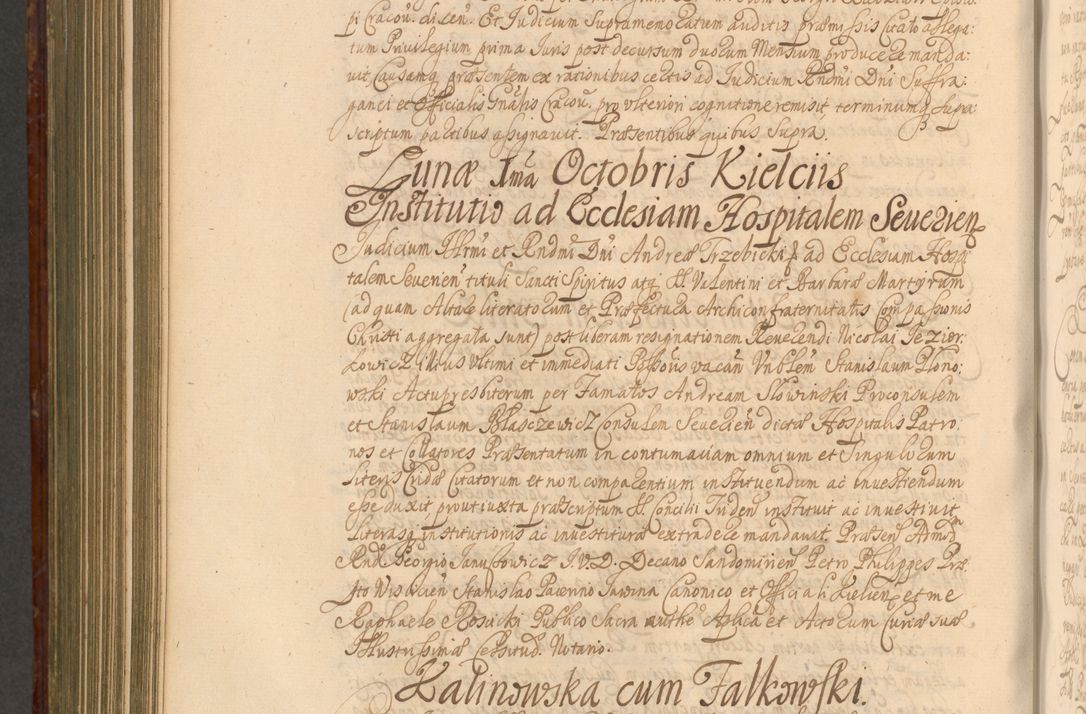 pi Cracou. dicen. Et Judicium Supramemoratum auditis præmissis Citato allega:
tum Privilegium prima Juris post decursum duorum Mensium producere manda:
uit Causamq præsentem ex rationibus certis ad Judicium Rndmi Dni Suffra:
ganei et Officialis Gnalis Cracou. pro vlteriori cognitione remisit terminumq supra:
scriptum partibus assignauit. Præsentibus quibus Supra.
Lunæ 1ma Octobris Kielciis
Institutio ad Ecclesiam Hospitalem Seuerien
Judicium Illrmi et Rndmi Dni Andreæ Trzebicki ad Ecclesiam Hospi
talem Seuerien tituli Sancti Spiritus atq S. Valentini et Barbaræ Martyrum
(ad quam Altare literatorum et Præfectura Archiconfraternitatis Compassionis
Christi aggregata sunt) post liberam resignationem Reuerendi Nicolai Jezior:
kowicz illius vltimi et immediati Possoris vacan Vnblem Stanislaum Plono:
wski Actupresbiterum per Famatos Andream Slowinski Proconsulem
et Stanislaum Blasczewicz Consulem Seuerien dictæ Hospitalis Patro
nos et Collatores Præsentatum in contumaciam omnium et Singulorum
literis Cridæ Citatorum et non comparentium instituendum ac inuestiendum
esse duxit prout iuxta præscriptum S. Concilii Triden instituit ac inuestiuit
literasq institutionis ac inuestituræ extradere mandauit. Præsen Admm
Rnd. Georgio Januszowicz J.V.D. Decano Sandomirien Petro Philippes Præ
pto Wislicien Stanislao Pacerino Jawina Canonico et Officiali Kielien et me
Raphaele Rosicki Publico Sacra authe Aplica et Actorum Curiæ suæ
Illustrissimæ Celsitud. Notario.
Kalinowska cum Falkowski.